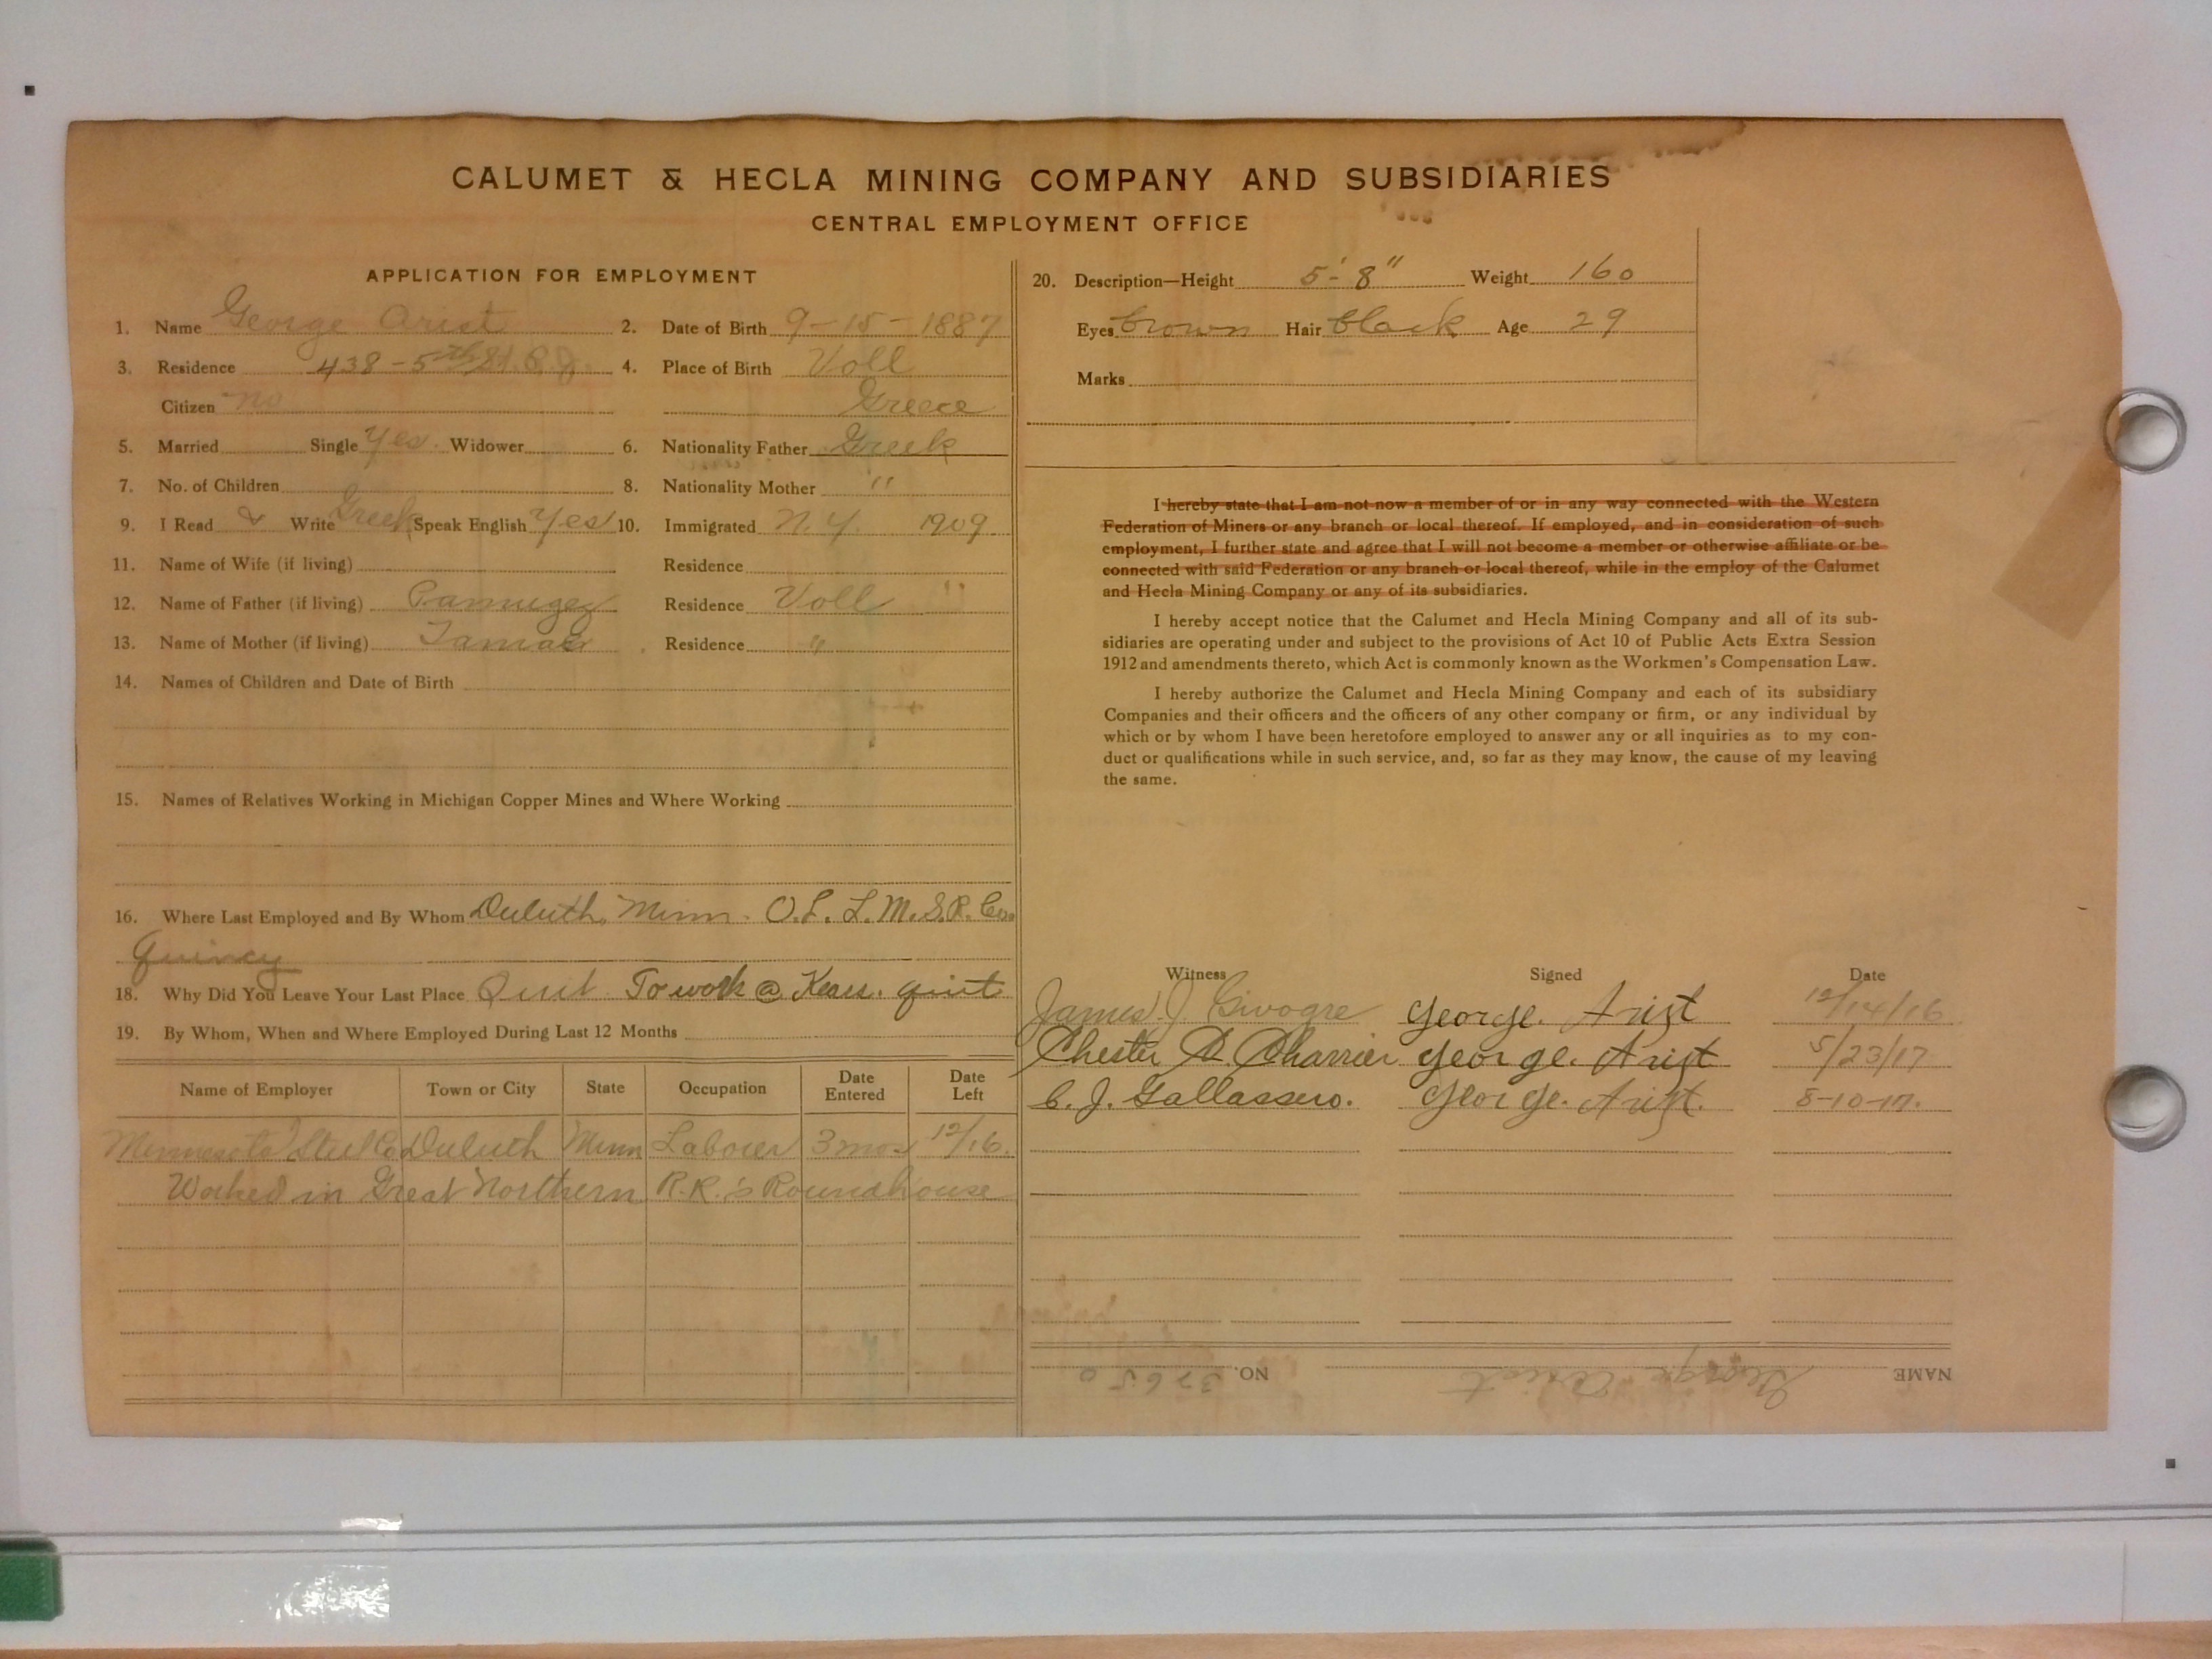 CALUMET & HECLA MINING COMPANY AND SUBSIDIARIES
CENTRAL EMPLOYMENT OFFICE
APPLICATION FOR EMPLOYMENT
1. Name George Arist 2. Date of Birth 9-15-1887
3. Residence 438-5th St. 4. Place of Birth Voll
Citizen no Greece
5. Married Single Yes. Widower 6. Nationality Father Greek
7. No. of Children 8. Nationality Mother "
9. I Read & Write Greek Speak English Yes 10. Immigrated N.Y. 1909.
11. Name of Wife (if living) Residence
12. Name of Father (if living) Residence Voll "
13. Name of Mother (if living) Residence "
14. Names of Children and Date of Birth
15. Names of Relatives Working in Michigan Copper Mines and Where Working
16. Where Last Employed and By Whom Duluth, Minn. O.L. L.M.S.R. Co.
Quincy
18. Why Did You Leave Your Last Place Quit To work @ Kears. quit
19. By Whom, When and Where Employed During Last 12 Months
Name of Employer Town or City State Occupation Date Entered Date Left
Minnesota Steel Co Duluth Minn Laborer 3 mos 12/16.
Worked in Great Northern R.R.'s Roundhouse
20. Description—Height 5'-8" Weight 160
Eyes brown Hair black Age 29
Marks
I hereby state that I am not now a member of or in any way connected with the Western
Federation of Miners or any branch or local thereof. If employed, and in consideration of such
employment, I further state and agree that I will not become a member or otherwise affiliate or be
connected with said Federation or any branch or local thereof, while in the employ of the Calumet
and Hecla Mining Company or any of its subsidiaries.
I hereby accept notice that the Calumet and Hecla Mining Company and all of its sub-
sidiaries are operating under and subject to the provisions of Act 10 of Public Acts Extra Session
1912 and amendments thereto, which Act is commonly known as the Workmen's Compensation Law.
I hereby authorize the Calumet and Hecla Mining Company and each of its subsidiary
Companies and their officers and the officers of any other company or firm, or any individual by
which or by whom I have been heretofore employed to answer any or all inquiries as to my con-
duct or qualifications while in such service, and, so far as they may know, the cause of my leaving
the same.
Witness Signed Date
James J. Givogre George. Arist 12/14/16
Chester D. Charrier George. Arist 5/23/17
C. J. Gallassero. George. Arist. 8-10-17.
NAME George Arist NO. 37650